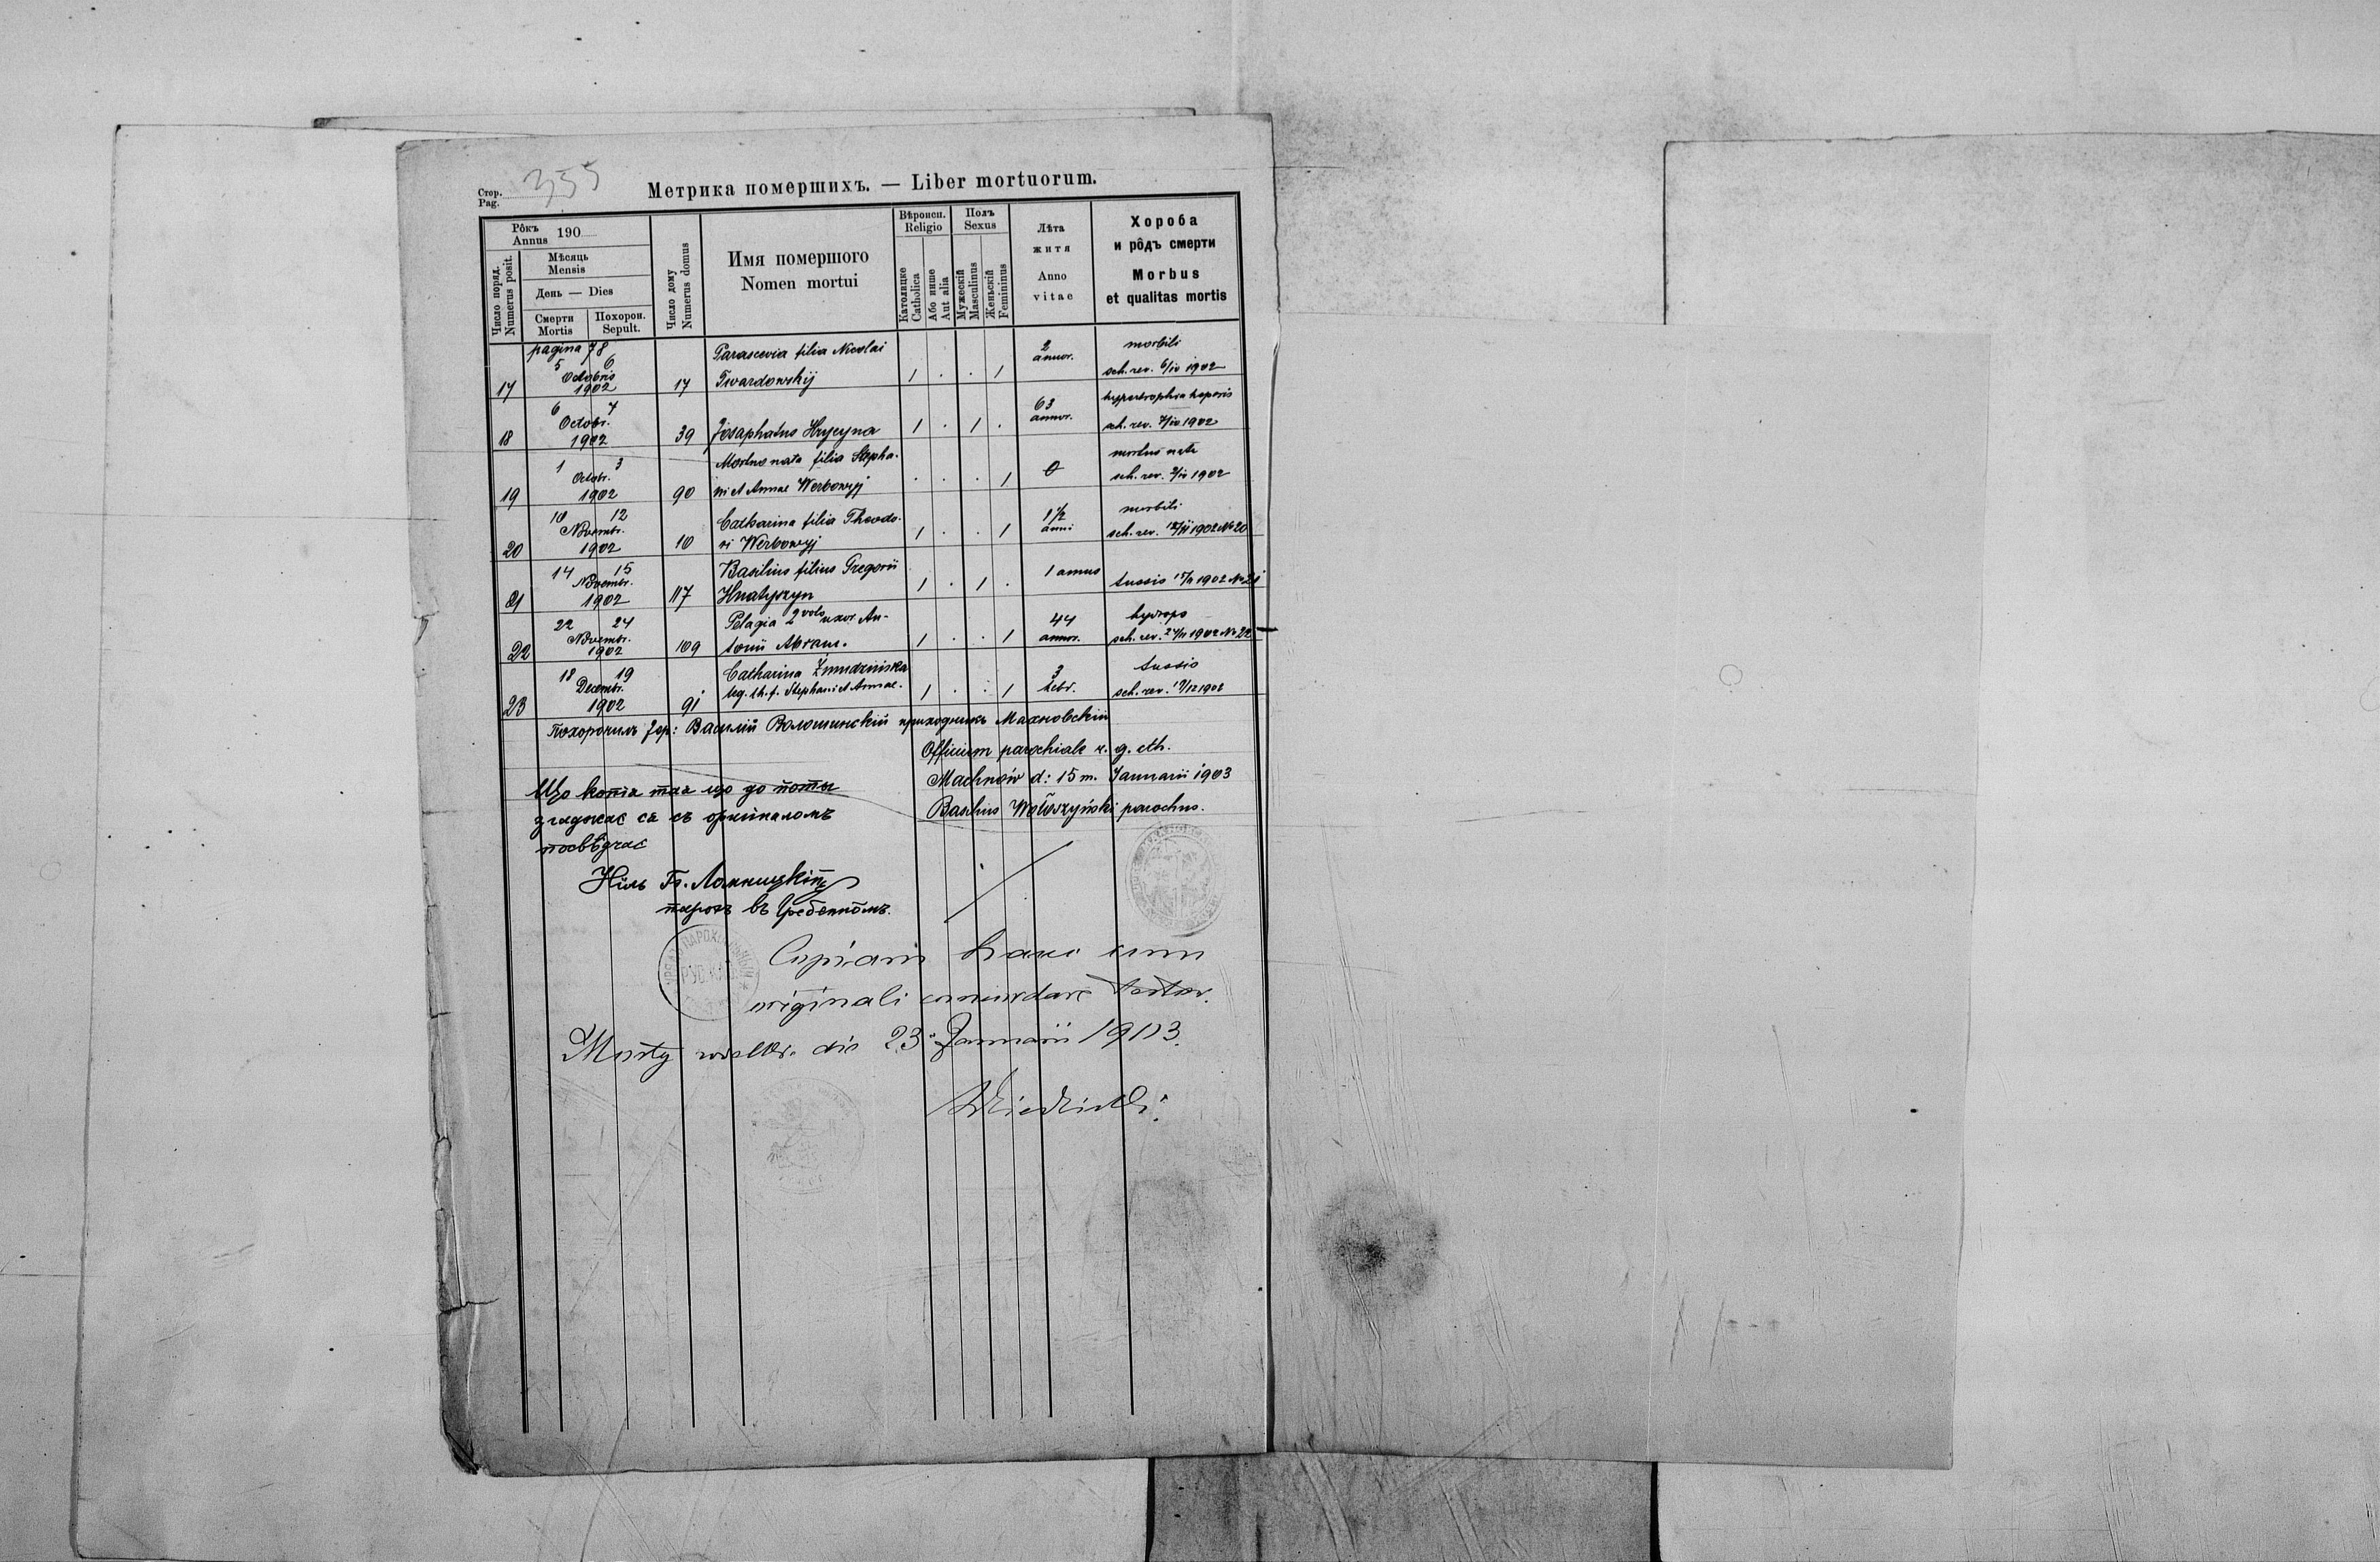 Стор.
Pag.
355
Метрика померших​ъ. — Liber mortuorum.
Рôкъ
Annus 190
Мѣсяць
Mensis
День — Dies
Число поряд.
Numerus posit.
Смерти
Mortis
Похорон.
Sepult.
Число дому
Numerus domus
Имя помершого
Nomen mortui
Вѣроисп.
Religio
Католицке
Catholica
Або инше
Aut alia
Полъ
Sexus
Мужескій
Masculinus
Женьскій
Femininus
Лѣта
житя
Anno
vitae
Хороба
и рôдъ смерти
Morbus
et qualitas mortis
pagina 78
17 5 6 Octobris 1902 17 Parascevia filia Nicolai
Twardowskij 1 . . 1 2 annor. morbili
sch. rev. 6/10 1902
18 6 7 Octobr. 1902 39 Josaphatus Hrycyna 1 . 1 . 63 annor. hypertrophia heparis
sch. rev. 7/10 1902
19 1 3 Octobr. 1902 90 Mortuo nata filia Stepha-
ni et Annae Werbowyj . . . 1 0 mortuo nata
sch. rev. 2/10 1902
20 10 12 Novembr. 1902 10 Catharina filia Theodo-
ri Werbowyj 1 . . 1 1 1/2 anni morbili
sch. rev. 12/11 1902 No 20
21 14 15 Novembr. 1902 117 Basilius filius Gregorii
Hnatyszyn 1 . 1 . 1 annus tussis 15/11 1902 No 21
22 22 24 Novembr. 1902 109 Pelagia 2 voto uxor An-
tonii Abram. 1 . . 1 44 annor. hydrops
sch. rev. 24/11 1902 No 22
23 18 19 Decembr. 1902 91 Catharina Żmudzińska
leg. th. f. Stephani et Annae. 1 . . 1 3 hebr. tussis
sch. rev. 19/12 1902
Похоронилъ Василій Волошинскій приходникъ Махновскій
Officium parochiale r. g. cth.
Machnów d: 15 m. Januarii 1903
Basilius Wołoszyński parochus.
Що копія таа що до ноты
згаджає ся съ оригиналомъ
посвѣдчає
Ниль
парохъ въ Гребенномъ.
Copiam hanc cum
originali concordare testor.
Mosty wielkie die 23 Januarii 1903.